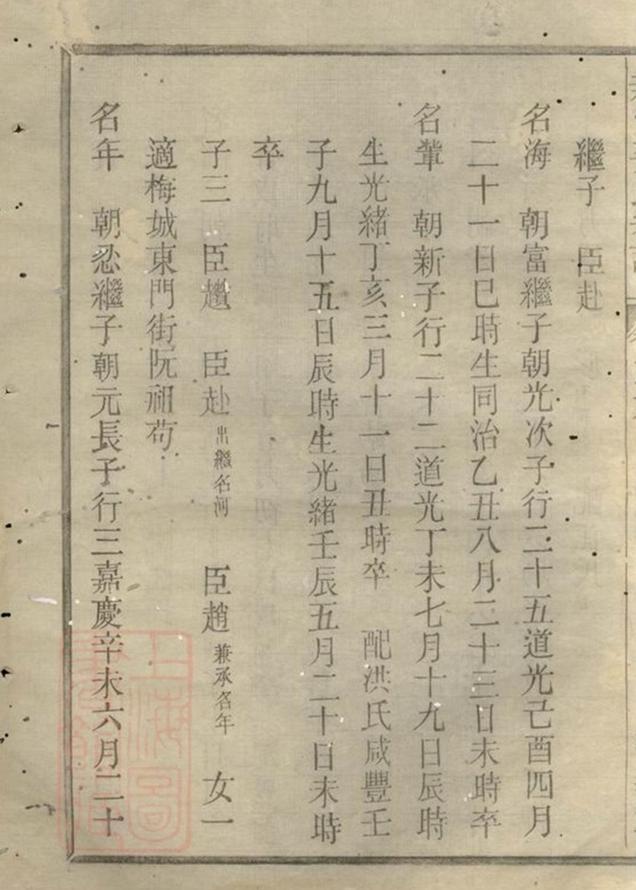 繼子　臣赴
名海　朝富繼子朝光次子行二十五道光己酉四月
二十一日巳時生同治乙丑八月二十三日未時卒
名輦　朝新子行二十二道光丁未七月十九日辰時
生光緒丁亥三月十一日丑時卒　配洪氏咸豐壬
子九月十五日辰時生光緒壬辰五月二十日未時
卒
子三　臣趨　臣赴出繼名河　臣趙兼承名年　女一
適梅城東門街阮祖苟
名年　朝忿繼子朝元長子行三嘉慶辛未六月二十
上海圖書館